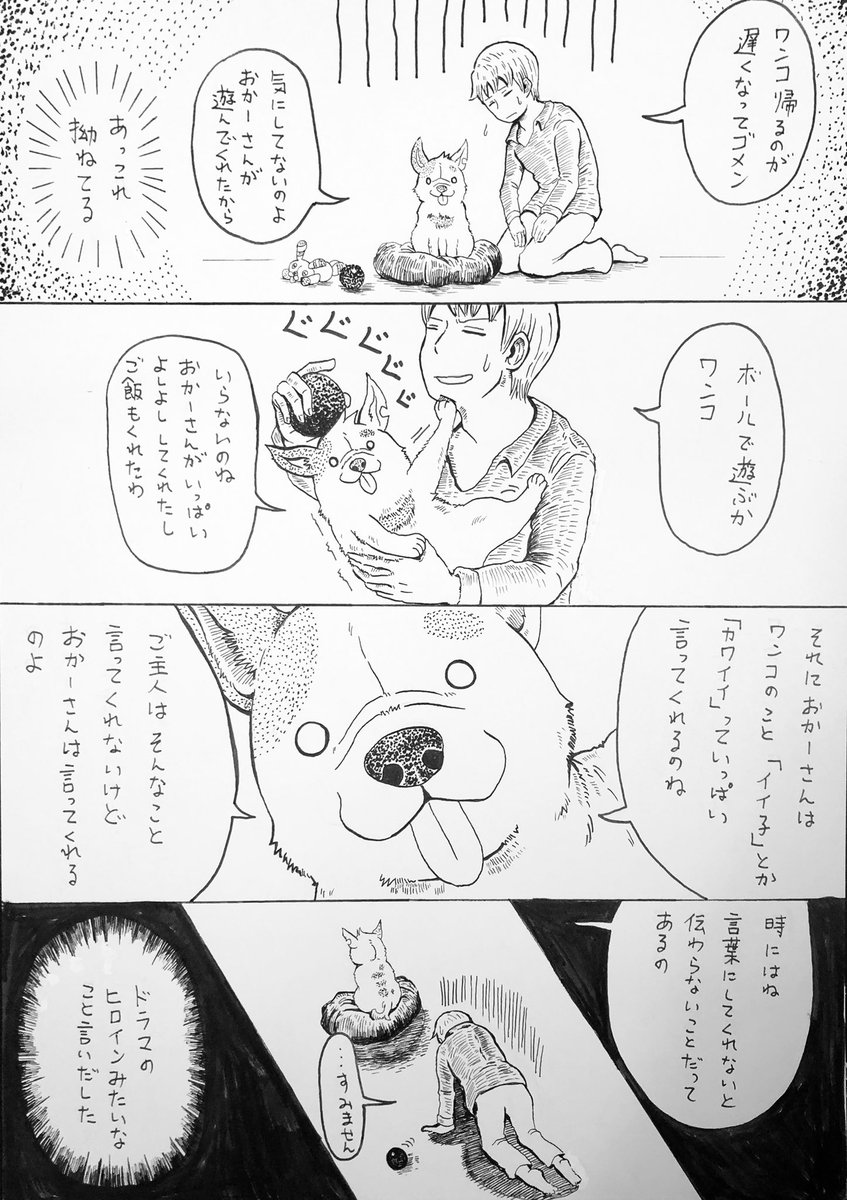 ワンコ 帰るのが
遅くなってゴメン
気にしてないのよ
おかーさんが
遊んでくれたから
あっこれ
拗ねてる
ボールで遊ぶか
ワンコ
ぐぐぐぐぐ
いらないのね
おかーさんがいっぱい
よしよししてくれたし
ご飯もくれたわ
それにおかーさんは
ワンコのこと「イイ子」とか
「カワイイ」っていっぱい
言ってくれるのね
ご主人はそんなこと
言ってくれないけど
おかーさんは言ってくれる
のよ
時にはね
言葉にしてくれないと
伝わらないことだって
あるの
・・・すみません
ドラマの
ヒロインみたいな
こと言いだした